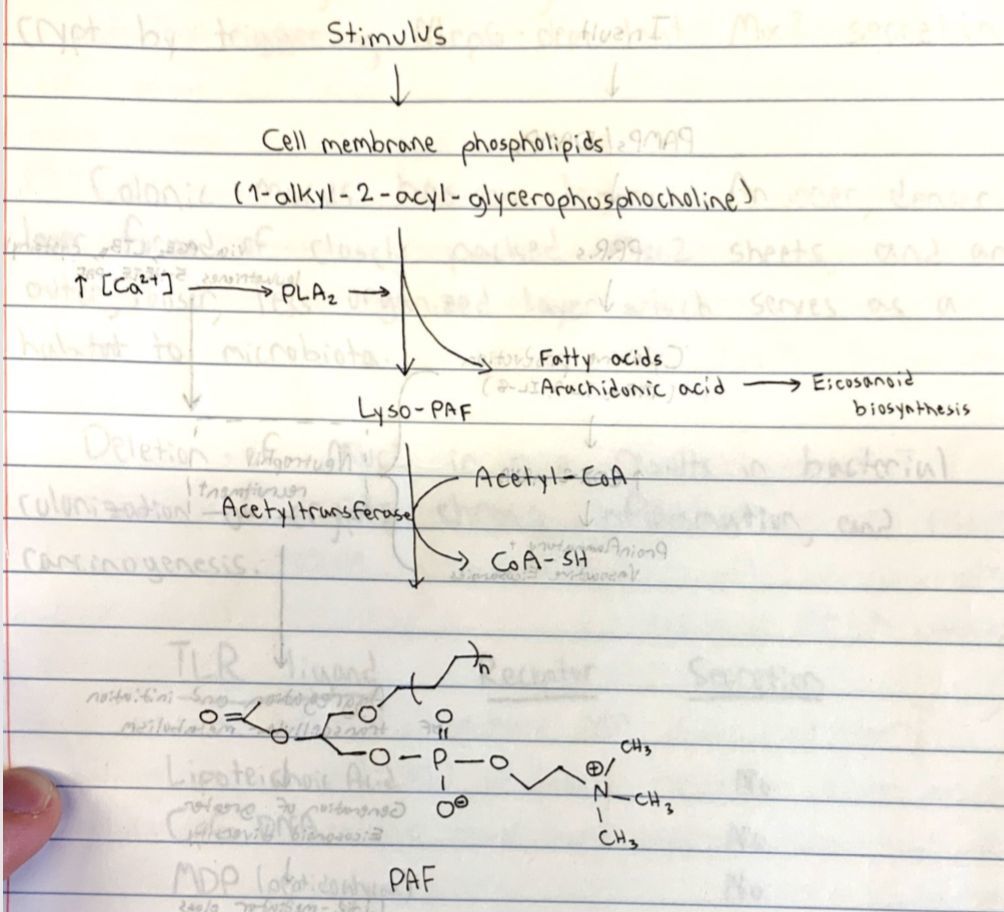 Stimulus
Cell membrane phospholipids
(1-alkyl-2-acyl-glycerophosphocholine)
↑ [Ca²⁺] → PLA₂ →
Fatty acids
Arachidonic acid → Eicosanoid
biosynthesis
Lyso-PAF
Acetyl-CoA
Acetyltransferase
CoA-SH
n
O
O
O
O
O
P
O
O⊖
⊕
N
CH₃
CH₃
CH₃
PAF